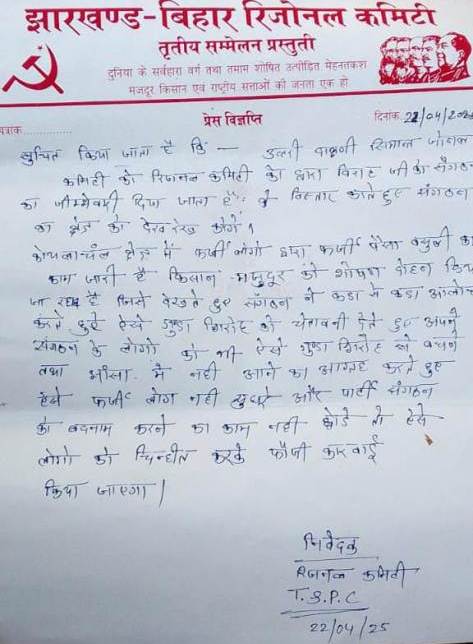 झारखण्ड-बिहार रिजोनल कमिटी
तृतीय सम्मेलन प्रस्तुती
दुनिया के सर्वहारा वर्ग तथा तमाम शोषित उत्पीड़ित मेहनतकश
मजदूर किसान एवं राष्ट्रीय सत्ताओं की जनता एक हो
पत्रांक
प्रेस विज्ञप्ति
दिनांक. 22/04/202
सुचित किया जाता है कि —
कमिटी को रिजनल कमिटी का द्वारा विराट जी को संगठन
का जीम्मेवारी दिया जाता है। वे विस्तार करते हुए संगठन
का क्षेत्र को देख रेख करेंगे।
कोयलाचंल क्षेत्र में फर्जी लोगों द्वारा फर्जी पैसा वसुली का
काम जारी है किसान मजदुर को शोषण दोहन किया
जा रहा है जिसे देखते हुए संगठन ने कडा से कडा आलोच
करते हुऐ ऐसे गुंडा गिरोह को चेतावनी देते हुए अपने
संगठन के लोगो को भी ऐसे गुंडा गिरोह से बचने
तथा झांसा में नही आने का आग्रह करते हुए
ऐसे फर्जी लोग नही सुधरे और पार्टी संगठन
को बदनाम करने का काम नही छोडे तो ऐसे
लोगो को चिन्हीत करके फौजी कारवाई
किया जाएगा।
निवेदक
रिजनल कमिटी
T.S.P.C
22/04/25